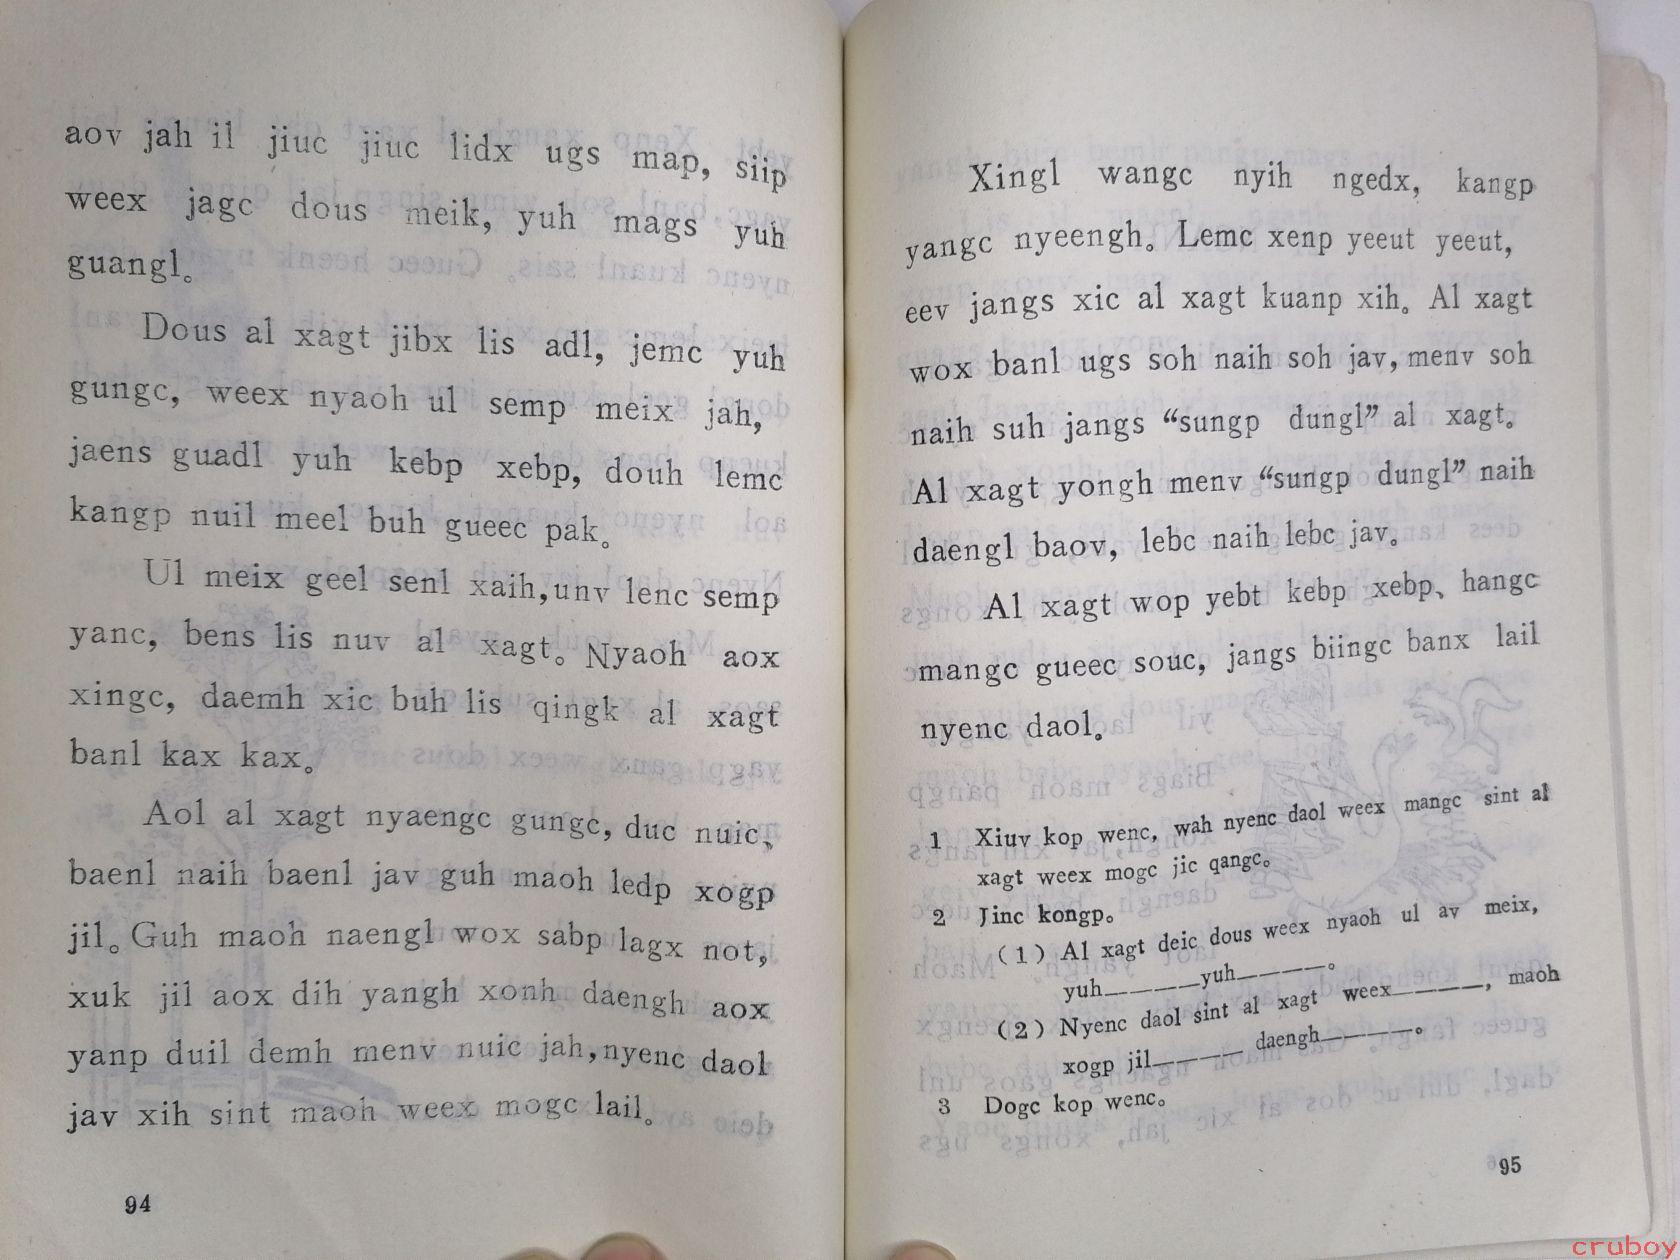 aov jah il jiuc jiuc lidx ugs map, siip
weex jagc dous meik, yuh mags yuh
guangl。
Dous al xagt jibx lis adl, jemc yuh
gungc, weex nyaoh ul semp meix jah,
jaens guadl yuh kebp xebp, douh lemc
kangp nuil meel buh gueec pak。
Ul meix geel senl xaih, unv lenc semp
yanc, bens lis nuv al xagt。Nyaoh aox
xingc, daemh xic buh lis qingk al xagt
banl kax kax。
Aol al xagt nyaengc gungc, duc nuic、
baenl naih baenl jav guh maoh ledp xogp
jil。Guh maoh naengl wox sabp lagx not,
xuk jil aox dih yangh xonh daengh aox
yanp duil demh menv nuic jah, nyenc daol
jav xih sint maoh weex mogc lail。
94
Xingl wangc nyih ngedx, kangp
yangc nyeengh。Lemc xenp yeeut yeeut,
eev jangs xic al xagt kuanp xih。Al xagt
wox banl ugs soh naih soh jav, menv soh
naih suh jangs “sungp dungl” al xagt。
Al xagt yongh menv “sungp dungl” naih
daengl baov, lebc naih lebc jav。
Al xagt wop yebt kebp xebp、hangc
mangc gueec souc, jangs biingc banx lail
nyenc daol。
1 Xiuv kop wenc, wah nyenc daol weex mangc sint al
xagt weex mogc jic qangc。
2 Jinc kongp。
(1) Al xagt deic dous weex nyaoh ul av meix,
yuh_____yuh_____。
(2) Nyenc daol sint al xagt weex_____, maoh
xogp jil_____ daengh_____。
3 Dogc kop wenc。
95
cruboy